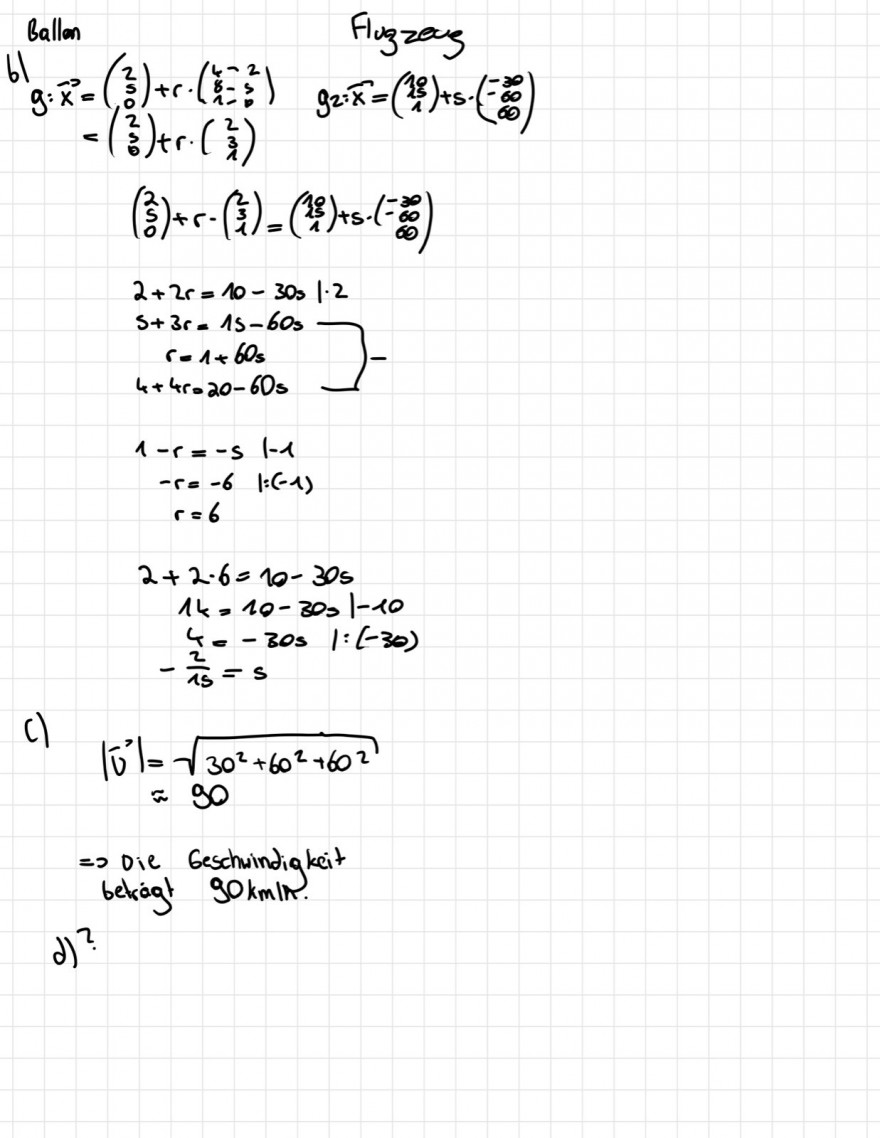 Ballon Flugzeug
b) g: x⃗ = (2 5 0) + r · (4-2 8-5 1-0) g2: x⃗ = (10 15 1) + s · (-30 -60 60)
= (2 5 0) + r · (2 3 1)
(2 5 0) + r · (2 3 1) = (10 15 1) + s · (-30 -60 60)
2 + 2r = 10 - 30s |·2
5 + 3r = 15 - 60s
r = 1 + 60s
4 + 4r = 20 - 60s
-
1 - r = -5 |-1
-r = -6 |:(-1)
r = 6
2 + 2·6 = 10 - 30s
14 = 10 - 30s |-10
4 = - 30s |:(-30)
- 2/15 = s
c)
|v⃗| = √(30² + 60² + 60²)
≈ 90
=> Die Geschwindigkeit
beträgt 90 km/h.
d) ?